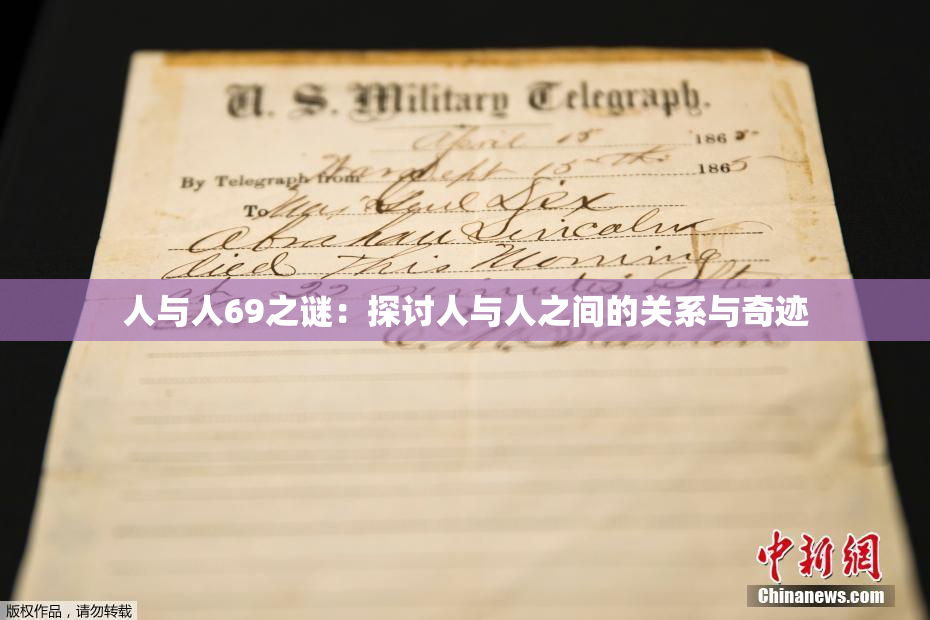 U. S. Military Telegraph.
April 15 1865
By Telegraph from War Dept 15th 1865
To Maj Genl Dix
Abraham Lincoln
died This Morning
at 22 minutes after
人与人69之谜：探讨人与人之间的关系与奇迹
E. M. Stanton
版权作品，请勿转载
中新网
Chinanews.com